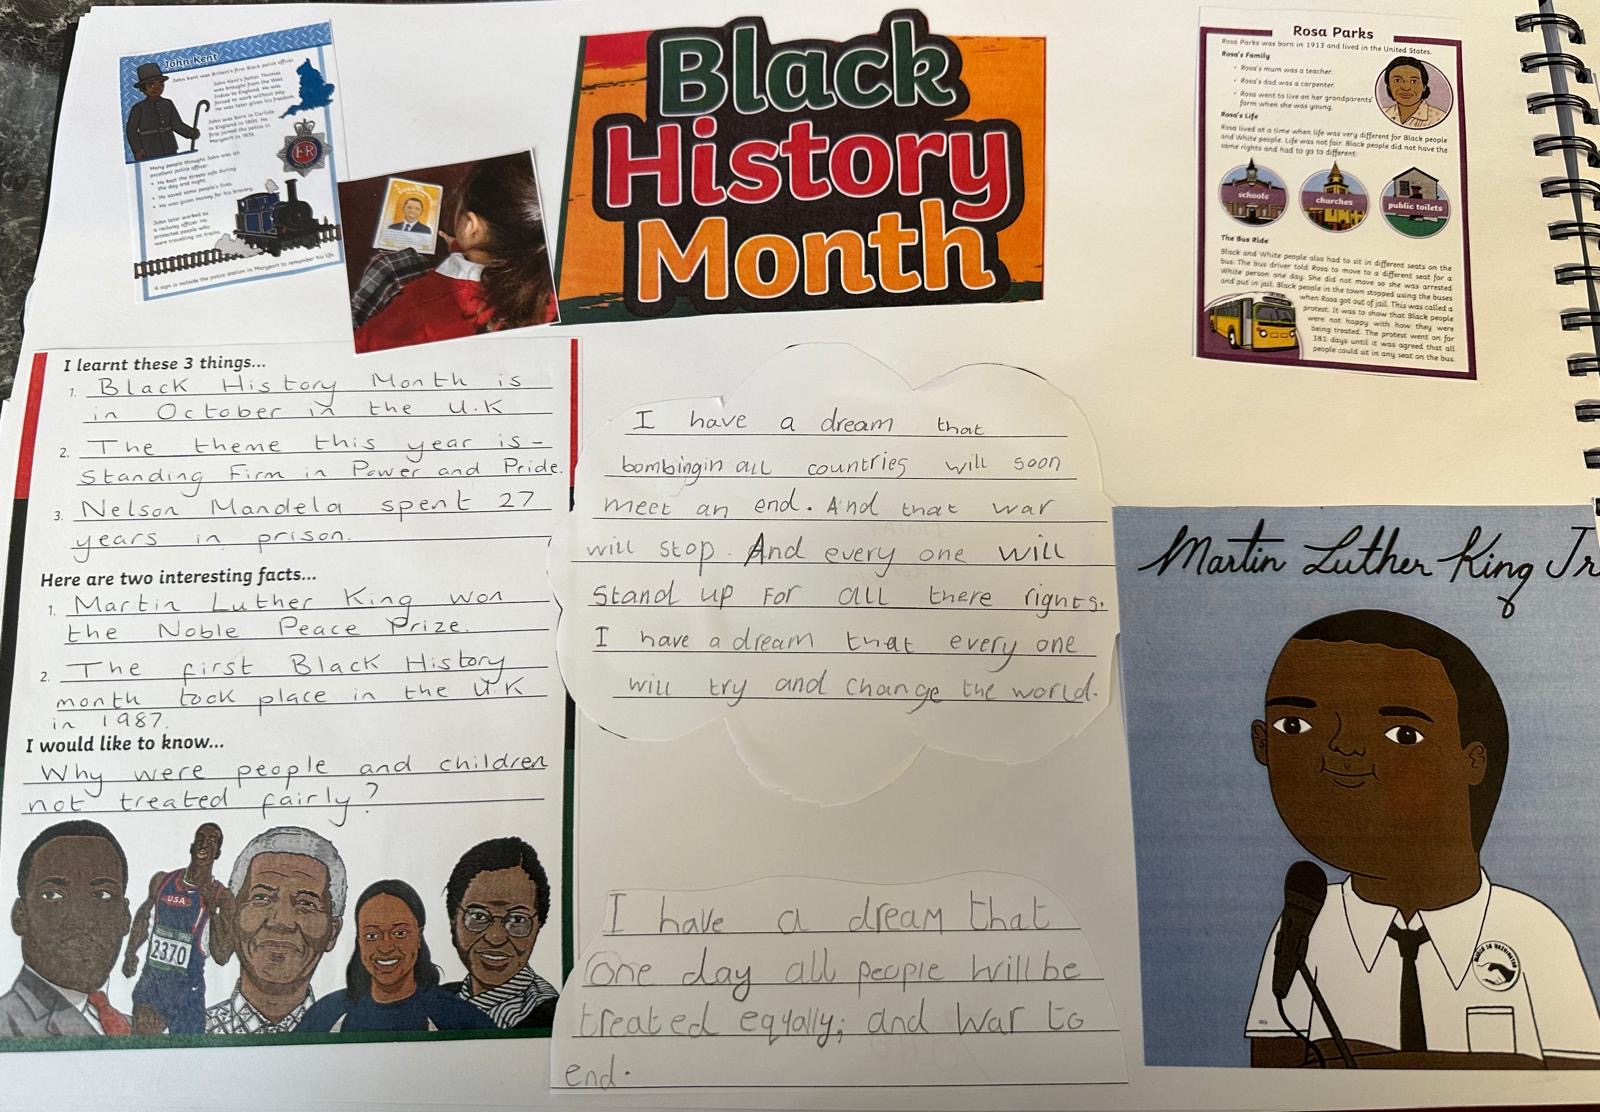 John Kent
John Kent was Britain's first Black police officer.
John Kent's father Thomas
was brought from the West
Indies to England. He was
forced to work without pay.
He was later given his freedom.
John was born in Carlisle
in England in 1805. He
first joined the police in
Maryport in 1835.
Many people thought John was an
excellent police officer.
He kept the streets safe during
the day and night.
He saved some people's lives.
He was given money for his bravery.
John later worked as
a railway officer. He
protected people who
were travelling on trains.
A sign is outside the police station in Maryport to remember his life.
ER
Black
History
Month
Rosa Parks
Rosa Parks was born in 1913 and lived in the United States.
Rosa's Family
Rosa's mum was a teacher.
Rosa's dad was a carpenter.
Rosa went to live on her grandparents'
farm when she was young.
Rosa's Life
Rosa lived at a time when life was very different for Black people
and White people. Life was not fair. Black people did not have the
same rights and had to go to different:
schools
churches
public toilets
The Bus Ride
Black and White people also had to sit in different seats on the
bus. The bus driver told Rosa to move to a different seat for a
White person one day. She did not move so she was arrested
and put in jail. Black people in the town stopped using the buses
when Rosa got out of jail. This was called a
protest. It was to show that Black people
were not happy with how they were
being treated. The protest went on for
381 days until it was agreed that all
people could sit in any seat on the bus.
I learnt these 3 things...
1. Black History Month is
in October in the U.K
2. The theme this year is -
Standing Firm in Power and Pride.
3. Nelson Mandela spent 27
years in prison.
Here are two interesting facts...
1. Martin Luther King won
the Noble Peace Prize.
2. The first Black History
month took place in the U.K
in 1987.
I would like to know...
Why were people and children
not treated fairly?
USA
2370
I have a dream that
bombingin all countries will soon
meet an end. And that war
will stop. And every one will
Stand up For all there rights.
I have a dream that every one
will try and change the world.
I have a dream that
One day all people will be
treated equally; and war to
end.
Martin Luther King Jr